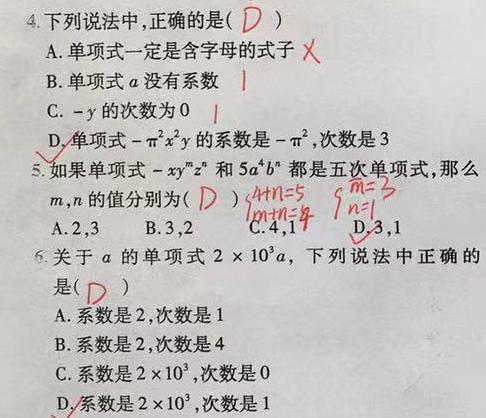 4.下列说法中,正确的是( D )
A.单项式一定是含字母的式子 ×
B.单项式 a 没有系数 1
C. -y 的次数为0 1
D.单项式 -π²x²y 的系数是 -π²,次数是3
5.如果单项式 -xyᵐzⁿ 和 5a⁴bⁿ 都是五次单项式,那么
m,n 的值分别为( D ) {4+n=5 {m=3
m+n=4 n=1
A.2,3 B.3,2 C.4,1 D.3,1
6.关于 a 的单项式 2×10³a,下列说法中正确的
是( D )
A.系数是2,次数是1
B.系数是2,次数是4
C.系数是2×10³,次数是0
D.系数是2×10³,次数是1